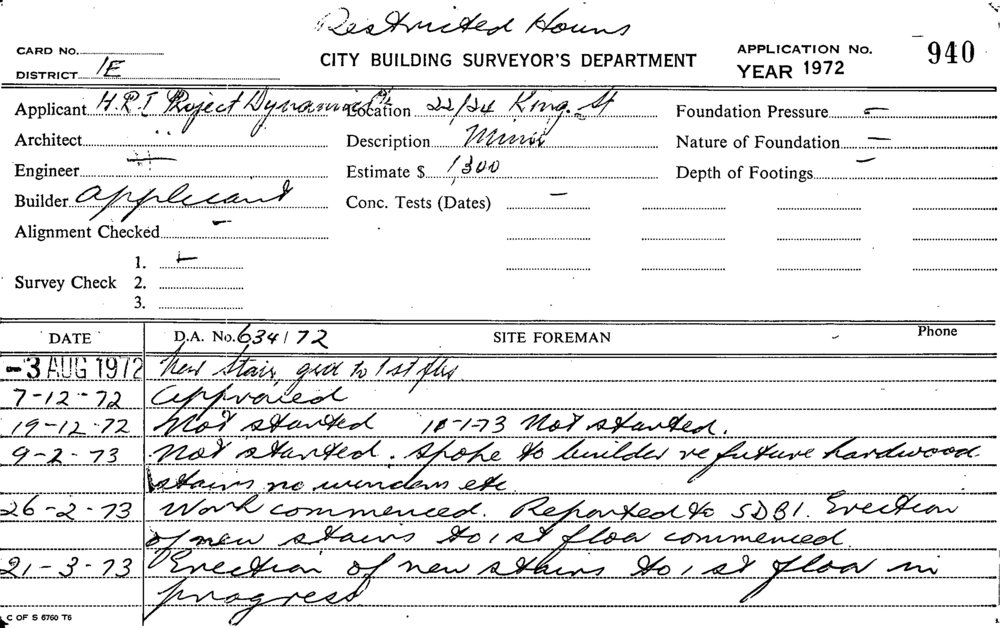 Restricted Hours
CARD No.
DISTRICT 1E
CITY BUILDING SURVEYOR'S DEPARTMENT
APPLICATION No. 940
YEAR 1972
Applicant H.R.I Project Dynamics P/L Location 22/24 King St Foundation Pressure –
Architect " Description Minor Nature of Foundation –
Engineer Estimate $ 1,300 Depth of Footings –
Builder Applicant Conc. Tests (Dates) –
Alignment Checked –
Survey Check 1.
2.
3.
DATE D.A. No. 634/72 SITE FOREMAN Phone
-3 AUG 1972 New Stair, grd to 1st flr
7-12-72 Approved
19-12-72 Not started 11-1-73 Not started.
9-2-73 Not started. Spoke to builder re future hardwood
stairs no winders etc
26-2-73 Work commenced. Reported to SDBI. Erection
of new stairs to 1st floor commenced.
21-3-73 Erection of new stairs to 1st floor in
progress
C OF S 6760 T6